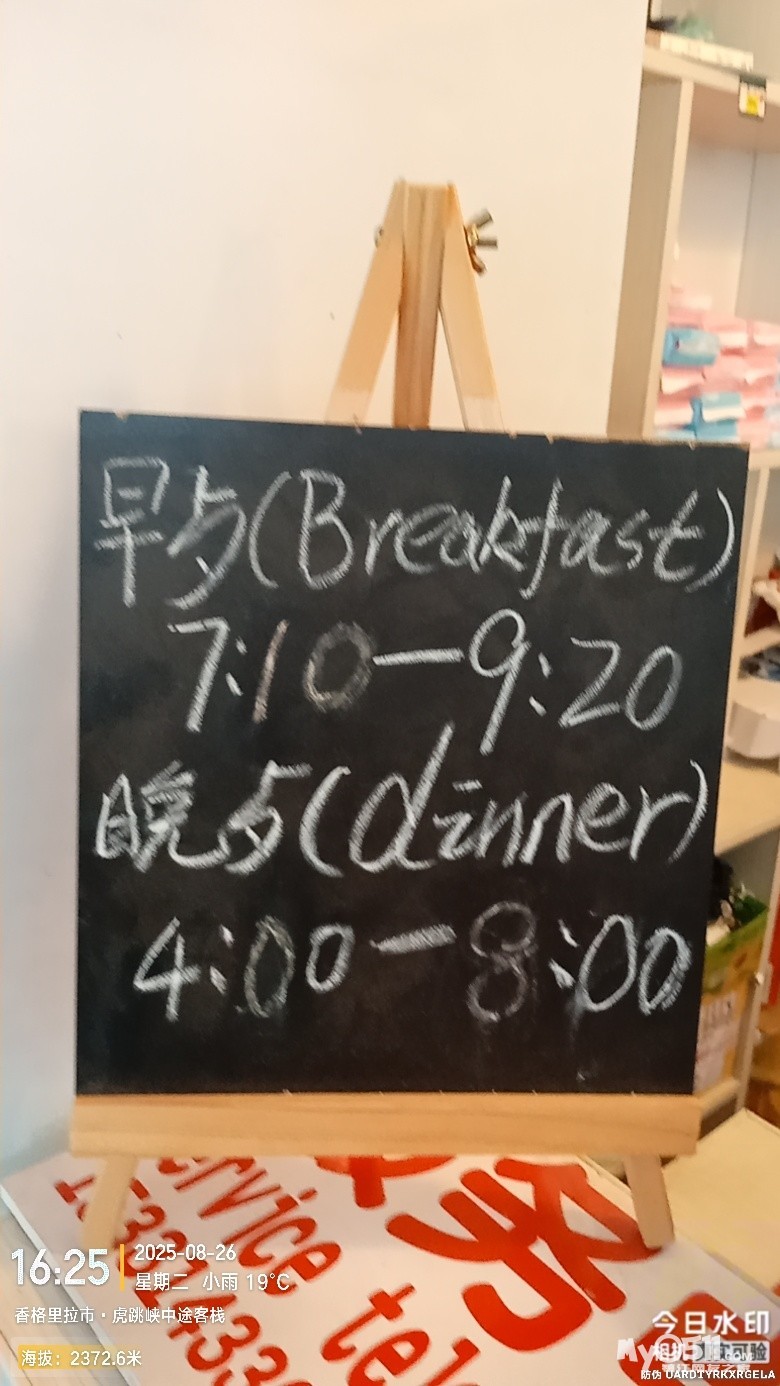 早点(Breakfast)
7:10—9:20
晚点(dinner)
4:00—8:00
务
service tel
16:25
2025-08-26
星期二 小雨 19℃
香格里拉市·虎跳峡中途客栈
海拔：2372.6米
今日水印
相机
防伪 UARDTYRKXRGELA